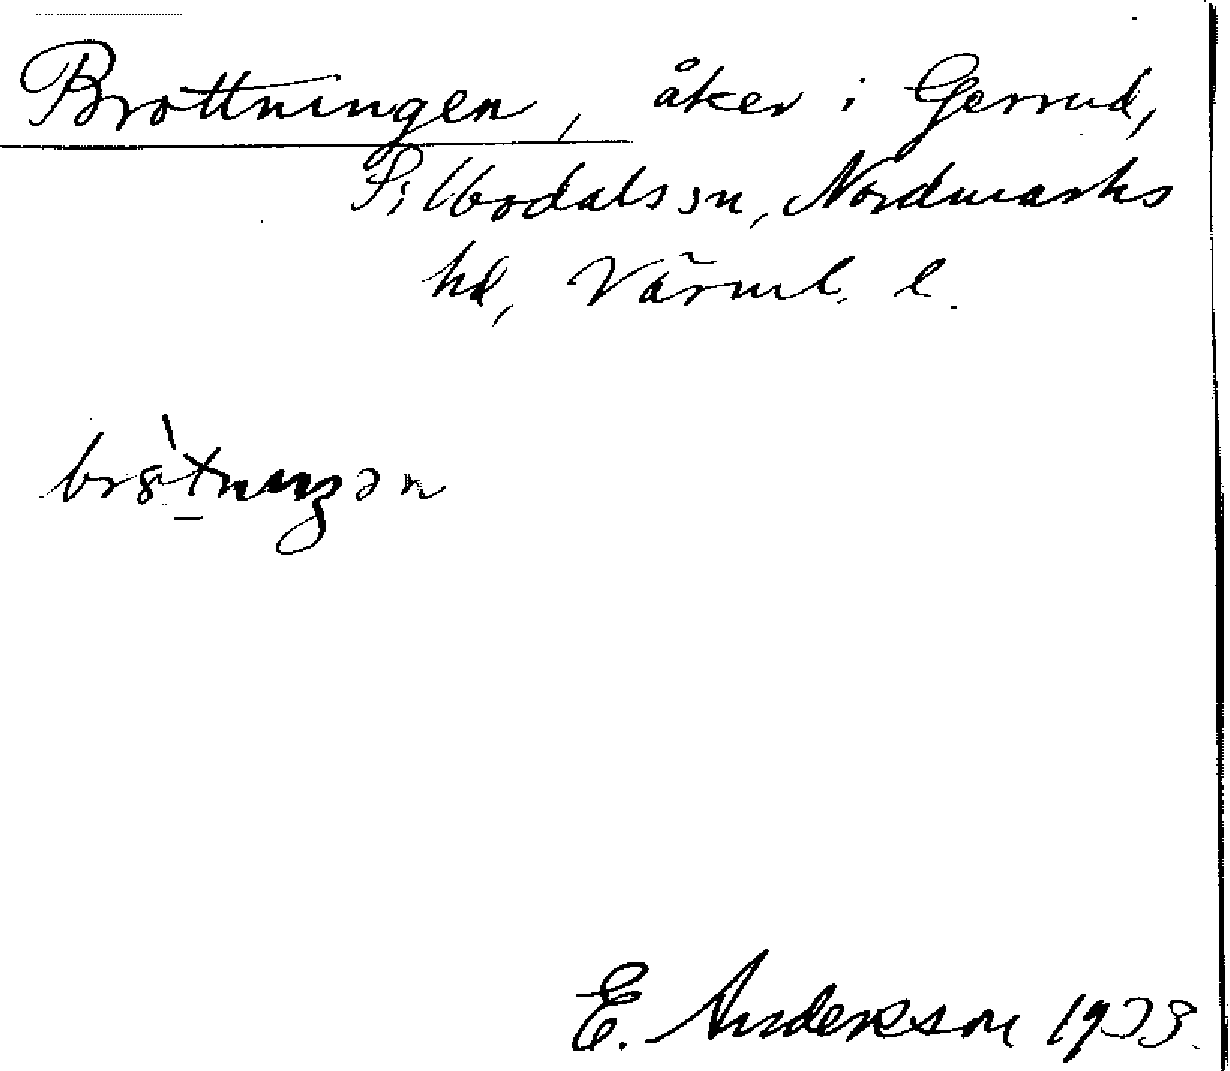 Brottningen, åker i Gerrud,
Silbodals sn, Nordmarks
hd, Värml. l.
E. Anderson 1933.